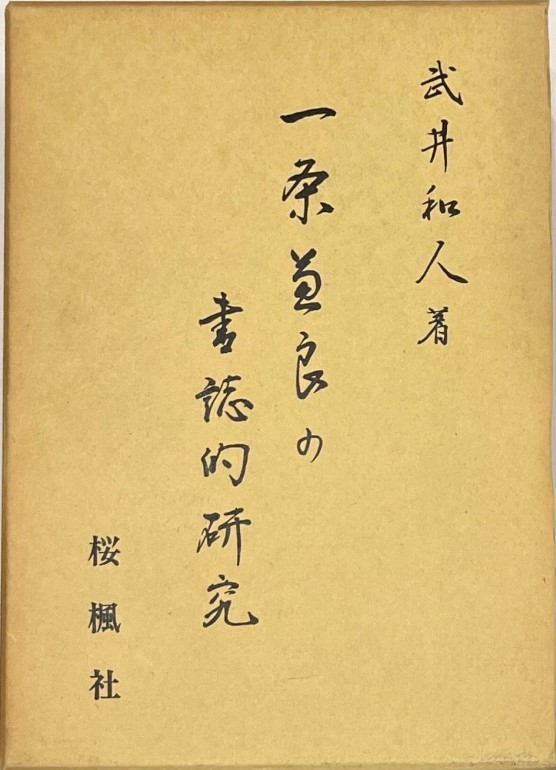 武井和人著
一条兼良の
書誌的研究
桜楓社